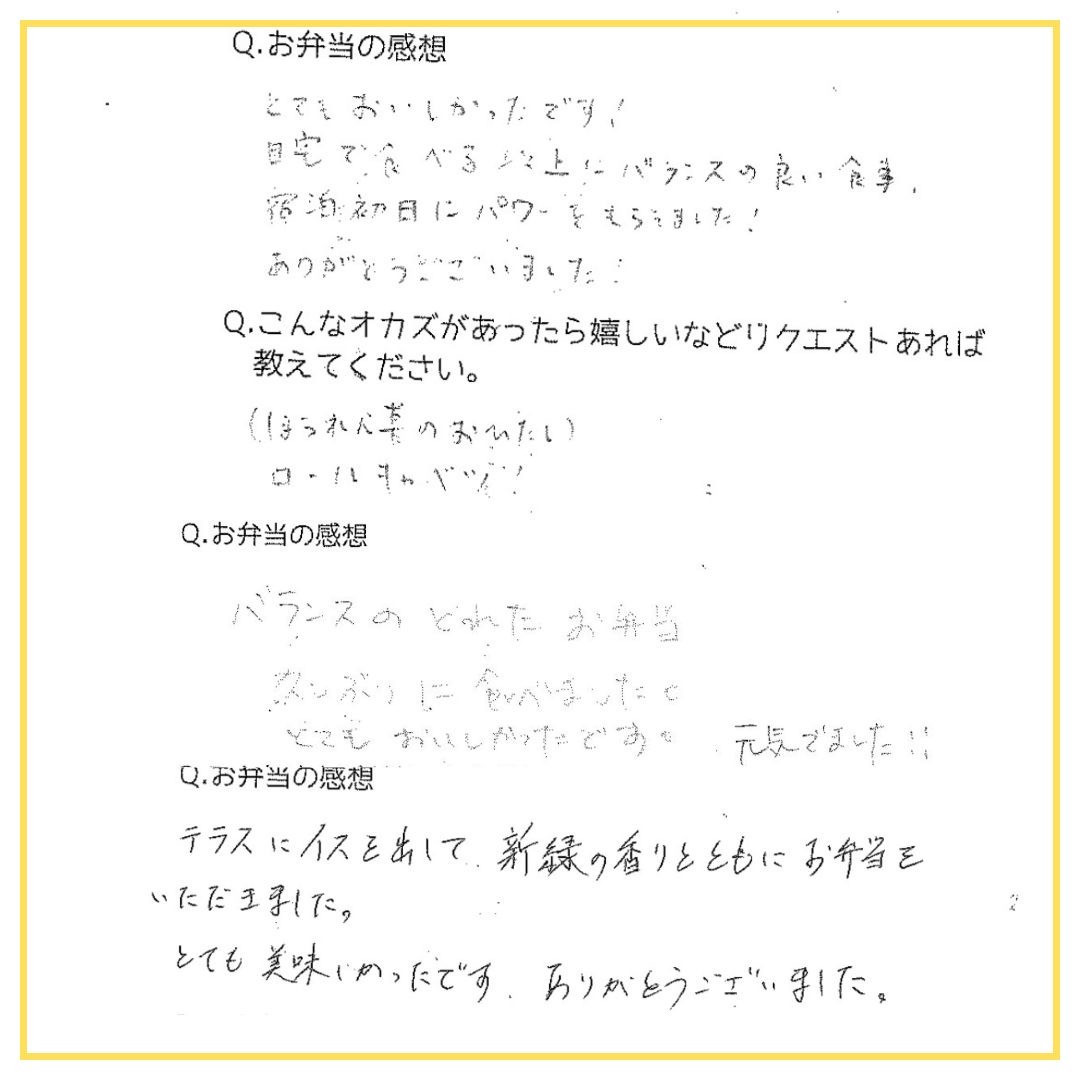 Q.お弁当の感想
とてもおいしかったです!
自宅で食べる以上にバランスの良い食事、
宿泊初日にパワーをもらえました!
ありがとうございました!
Q.こんなオカズがあったら嬉しいなどリクエストあれば
教えてください。
(ほうれん草のおひたし)
ロールキャベツ!
Q.お弁当の感想
バランスのとれたお弁当
久しぶりに食べました。
とてもおいしかったです。元気でました!!
Q.お弁当の感想
テラスにイスを出して、新緑の香りとともにお弁当を
いただきました。
とても美味しかったです。ありがとうございました。
2